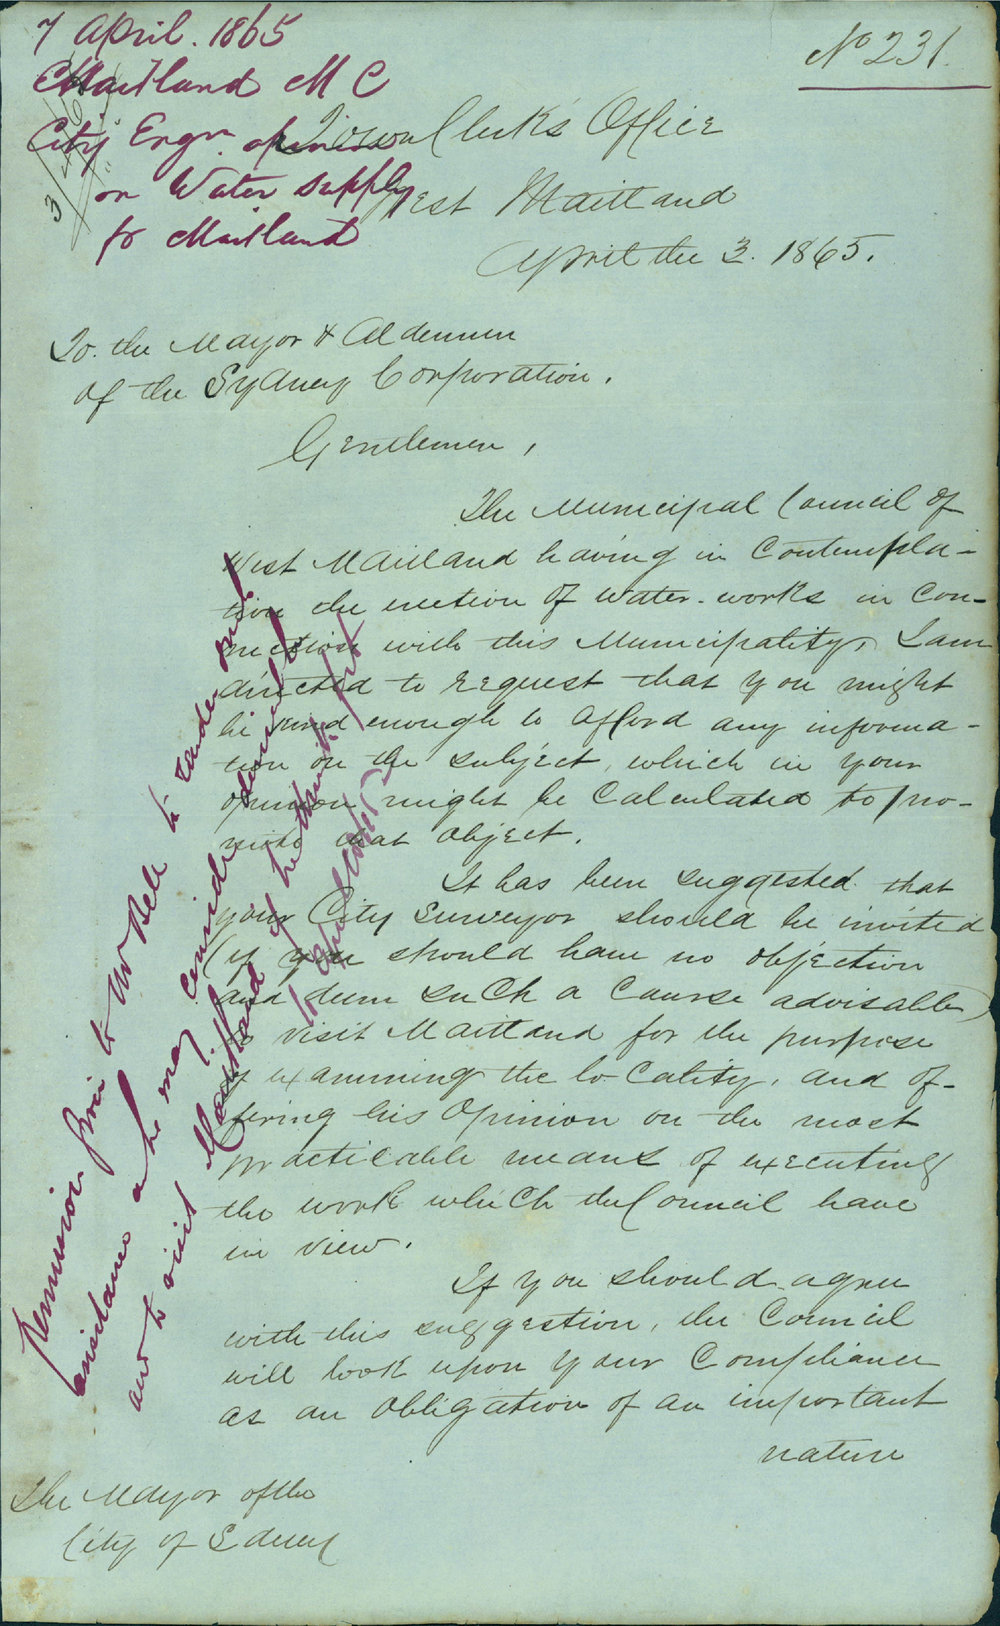 7 April. 1865
Maitland M C
City Engr. opinion
on Water Supply
for Maitland
No 231.
Town Clerk's Office
West Maitland
April the 3. 1865.
To. the Mayor & Aldermen
of the Sydney Corporation.
Gentlemen,
The Municipal Council of
West Maitland having in Contempla-
tion the erection of water-works in Con-
nection with this Municipality, I am
directed to request that you might
be kind enough to afford any informa-
tion on the subject, which in your
opinion might be Calculated to pro-
mote that object.
It has been suggested that
your City Surveyor should be invited
(if you should have no objection
and deem such a Course advisable)
to visit Maitland for the purpose
of examining the locality, and of-
fering his Opinion on the most
practicable means of executing
the work which the Council have
in view.
If you should agree
with this suggestion, the Council
will look upon your Compliance
as an Obligation of an important
nature
The Mayor of the
City of Sdney
Permission given to Mr Bell to render such
assistance as he may consider desirable
and to visit Maitland if he think fit